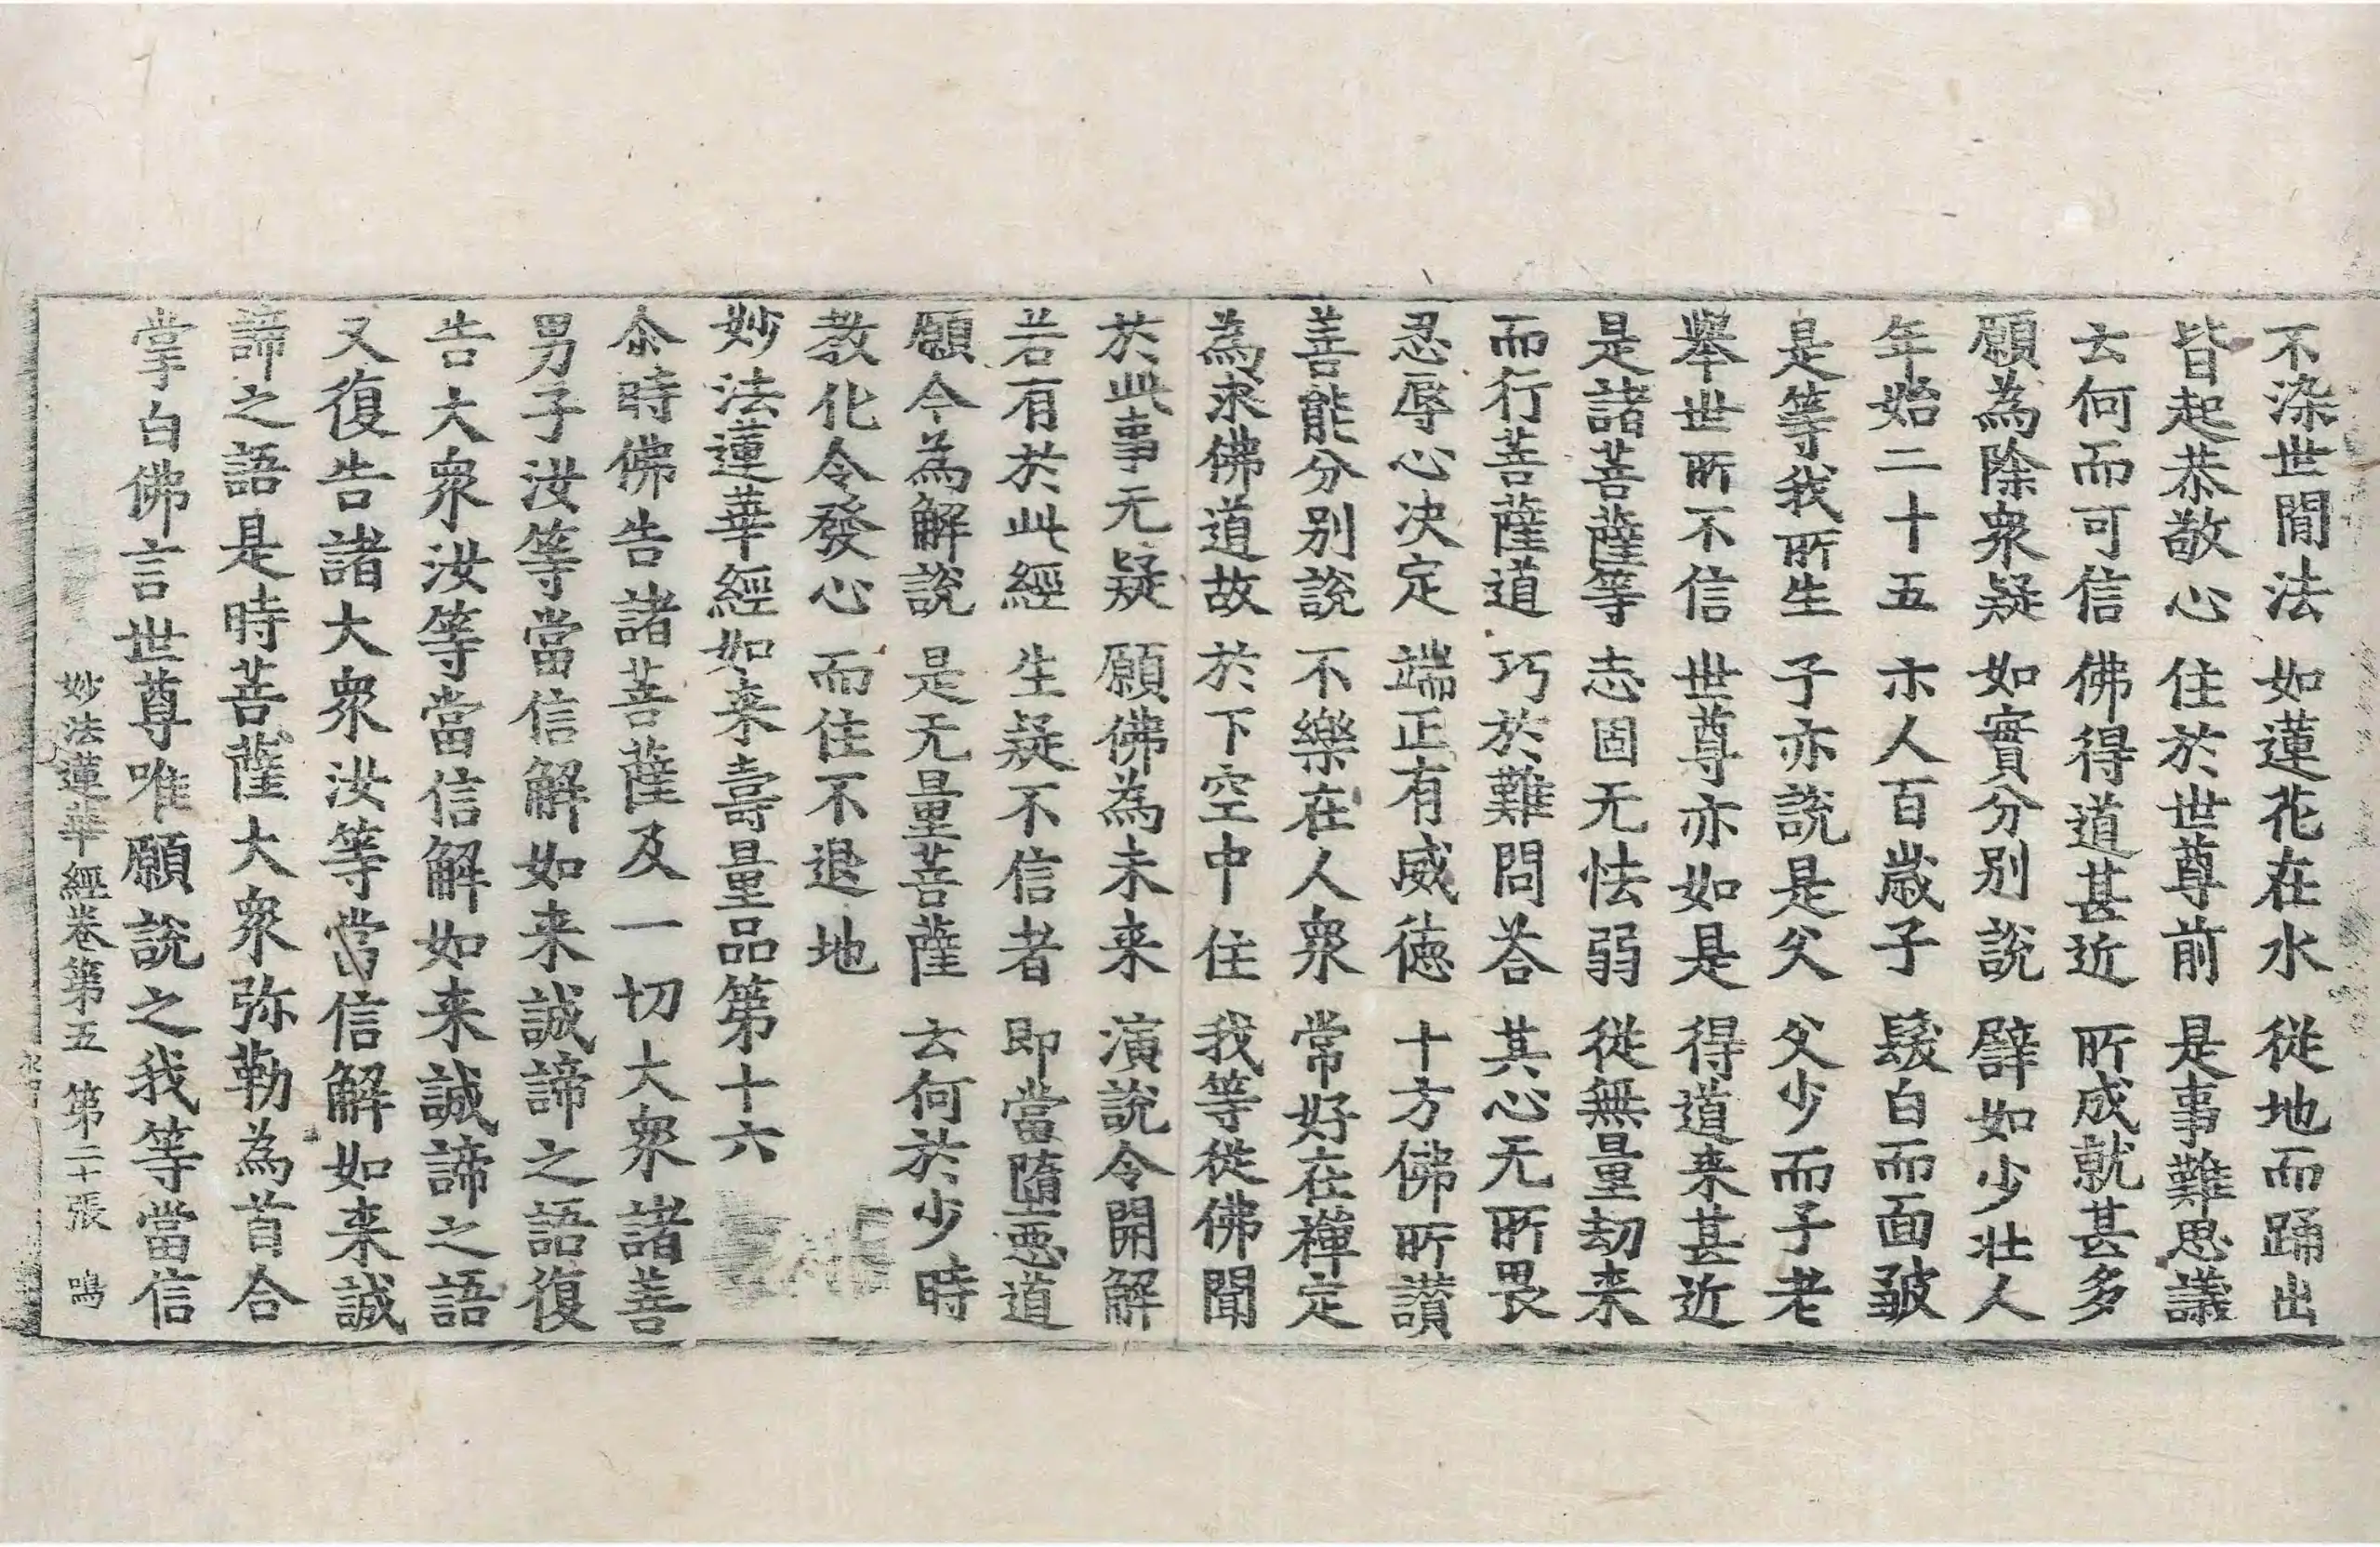 不染世間法 如蓮花在水 從地而踊出
皆起恭敬心 住於世尊前 是事難思議
云何而可信 佛得道甚近 所成就甚多
願為除衆疑 如實分别說 譬如少壯人
年始二十五 示人百歲子 髮白而面皺
是等我所生 子亦說是父 父少而子老
舉世所不信 世尊亦如是 得道来甚近
是諸菩薩等 志固无怯弱 從無量劫来
而行菩薩道 巧於難問荅 其心无所畏
忍辱心决定 端正有威德 十方佛所讃
善能分别說 不樂在人衆 常好在禪定
為求佛道故 於下空中住 我等從佛聞
於此事无疑 願佛為未来 演說令開解
若有於此經 生疑不信者 即當墮惡道
願今為解說 是无量菩薩 云何於少時
教化令發心 而住不退地
妙法蓮華經如来壽量品第十六
尒時佛告諸菩薩及一切大衆諸善
男子汝等當信解如来誠諦之語復
告大衆汝等當信解如来誠諦之語
又復告諸大衆汝等當信解如来誠
諦之語是時菩薩大衆弥勒為首合
掌白佛言世尊唯願說之我等當信
妙法蓮華經卷第五 第二十張